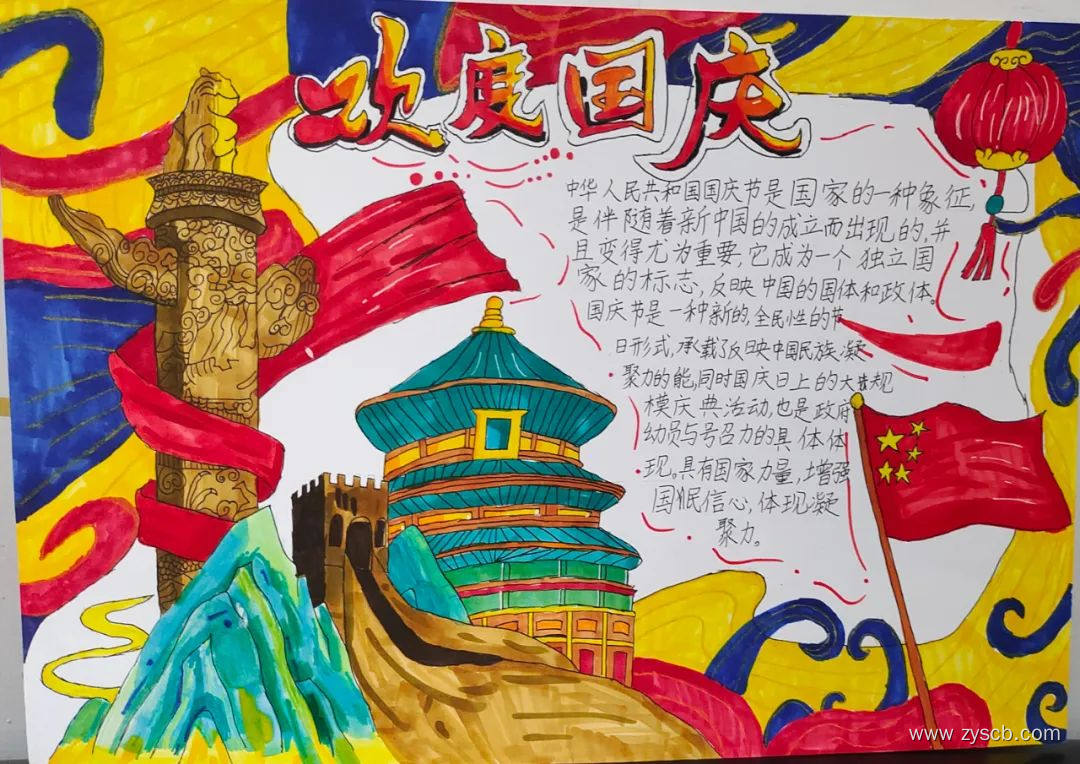 欢度国庆
中华人民共和国国庆节是国家的一种象征,
是伴随着新中国的成立而出现的,并
且变得尤为重要,它成为一个独立国
家的标志,反映中国的国体和政体。
国庆节是一种新的,全民性的节
日形式,承载了反映中国民族凝
聚力的能,同时国庆日上的大规
模庆典活动,也是政府
动员与号召力的具体体
现。具有国家力量,增强
国民信心,体现凝
聚力。
www.zyscb.com